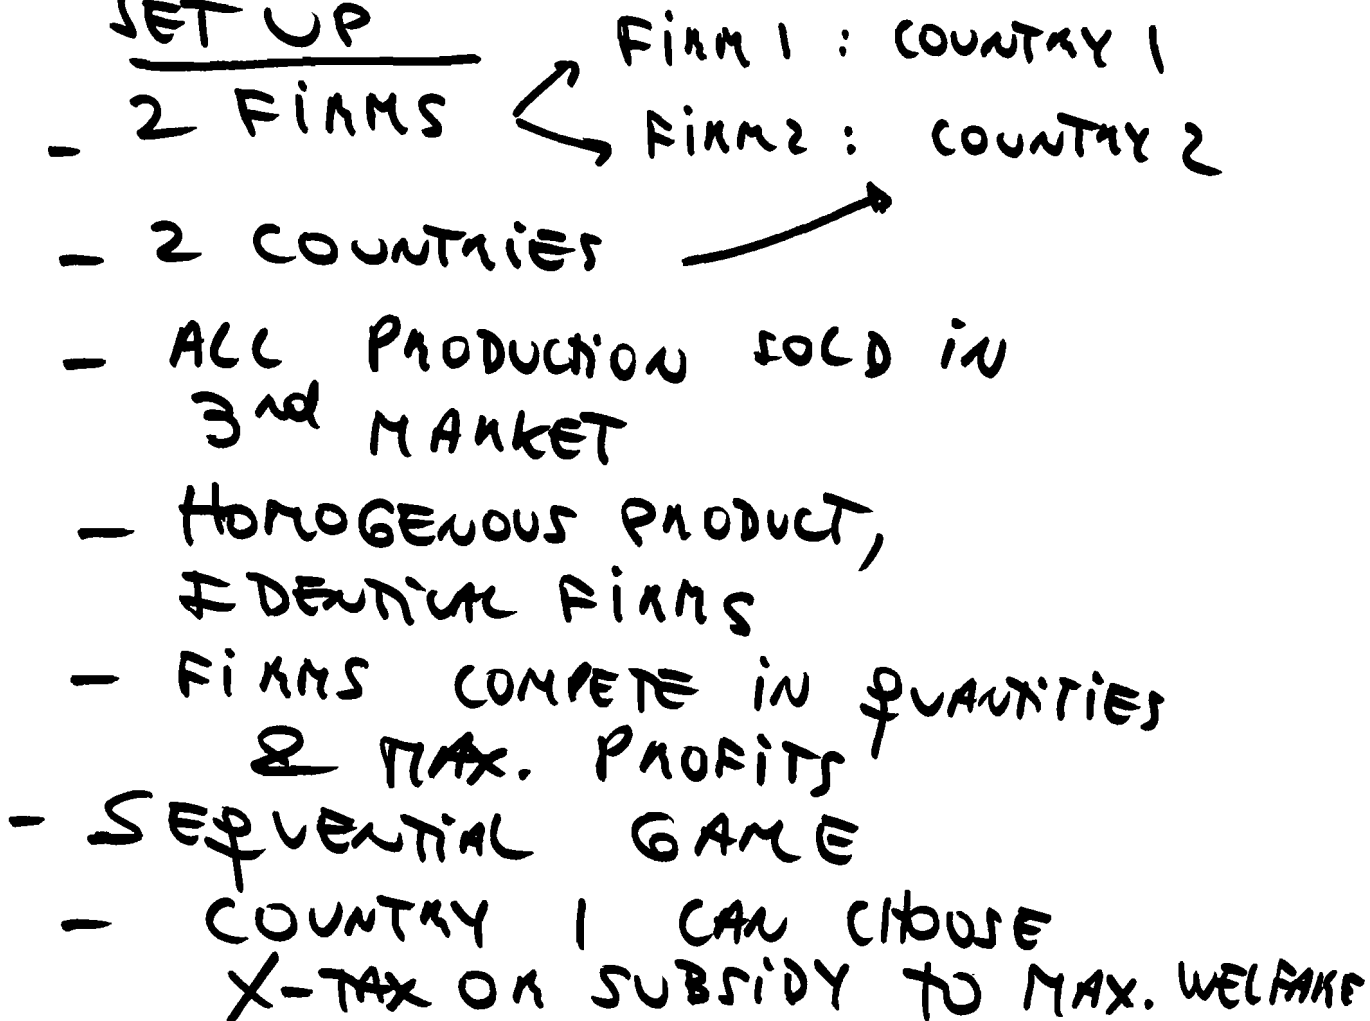 SET UP
- 2 FIRMS
FIRM 1 : COUNTRY 1
FIRM 2 : COUNTRY 2
- 2 COUNTRIES
- ALL PRODUCTION SOLD IN
3rd MARKET
- HOMOGENOUS PRODUCT,
IDENTICAL FIRMS
- FIRMS COMPETE IN QUANTITIES
& MAX. PROFITS
- SEQUENTIAL GAME
- COUNTRY 1 CAN CHOOSE
X-TAX OR SUBSIDY TO MAX. WELFARE